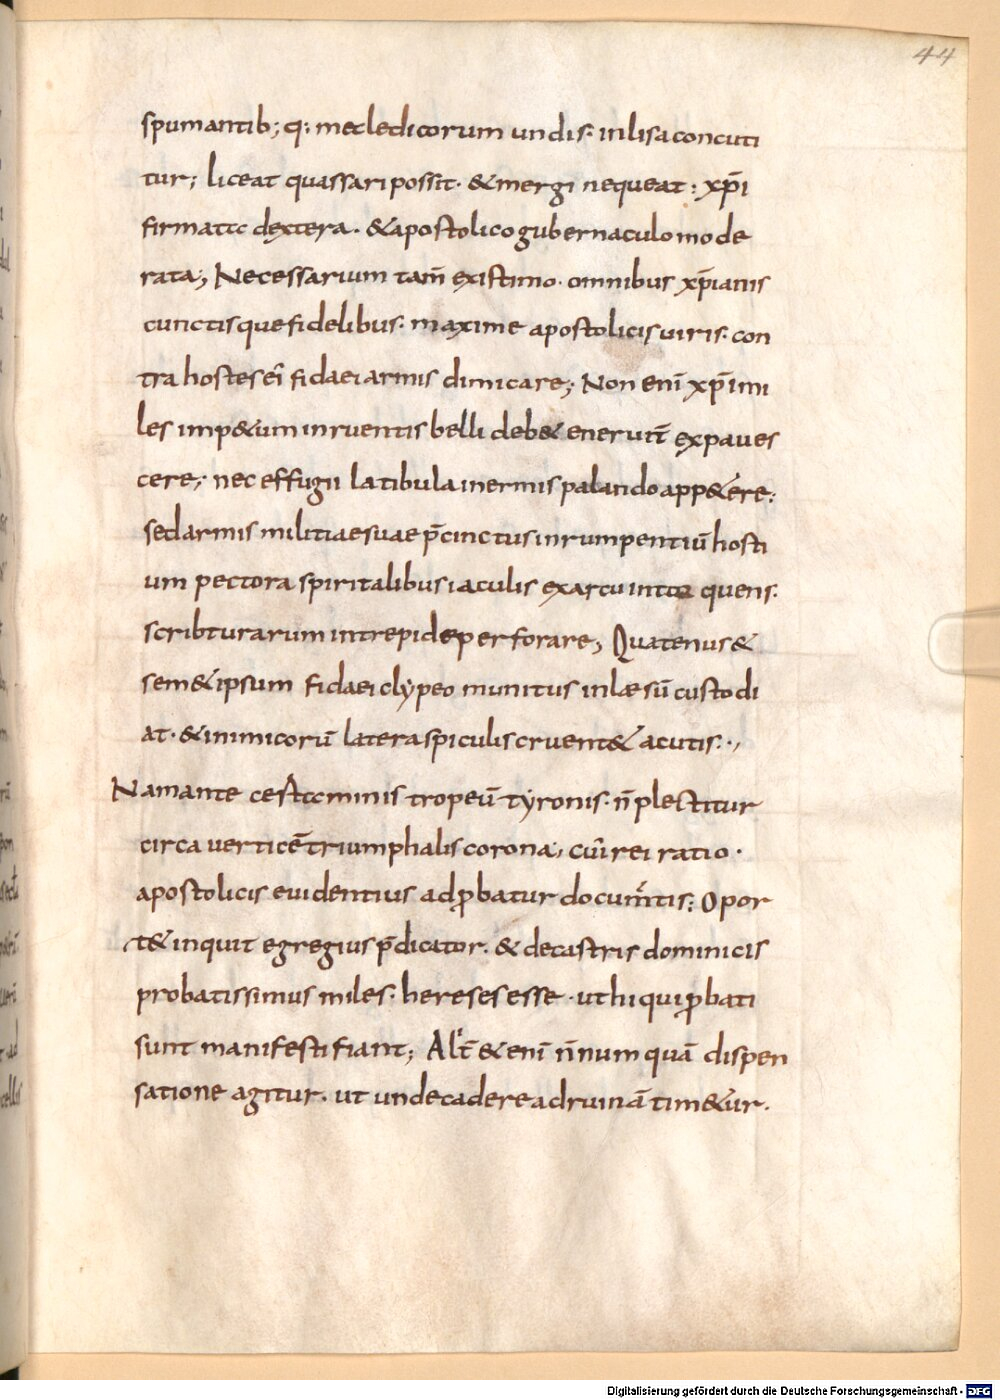 44
spumantib; q: maledicorum undis. inlisa concuti
tur; liceat quassari possit. & mergi nequeat: xp̄i
firmata dextera. & apostolico gubernaculo mode
rata; Necessarium tam̄ existimo. omnibus xp̄ianis
cunctisque fidelibus. maxime apostolicis uiris. con
tra hostes ei fidaei armis dimicare; Non enī xp̄i mi
les imp&um inruentis belli deb& eneruit̄ expaues
cere; nec effugii latibula inermis palando app&ere:
sed armis militiae suae p̄cinctus inrumpentiū hosti
um pectora spiritalibus iaculis ex arcu intorquens.
scribturarum intrepide perforare; Quatenus &
sem&ipsum fidaei clypeo munitus inlæsū custodi
at. & inimicorū latera spiculis cruent& acutis.,
Nam ante certaminis tropeū tyronis. n̄ plectitur
circa verticē triumphalis corona; cui rei ratio.
apostolicis euidentius adp̱batur documītis: Opor
t& inquit egregius p̄dicator. & de castris dominicis
probatissimus miles. hereses esse. ut hi qui p̱bati
sunt manifesti fiant; Alt̄ & enī n̄ numquā dispen
satione agitur. ut unde cadere ad ruinā tim&ur.
Digitalisierung gefördert durch die Deutsche Forschungsgemeinschaft - DFG